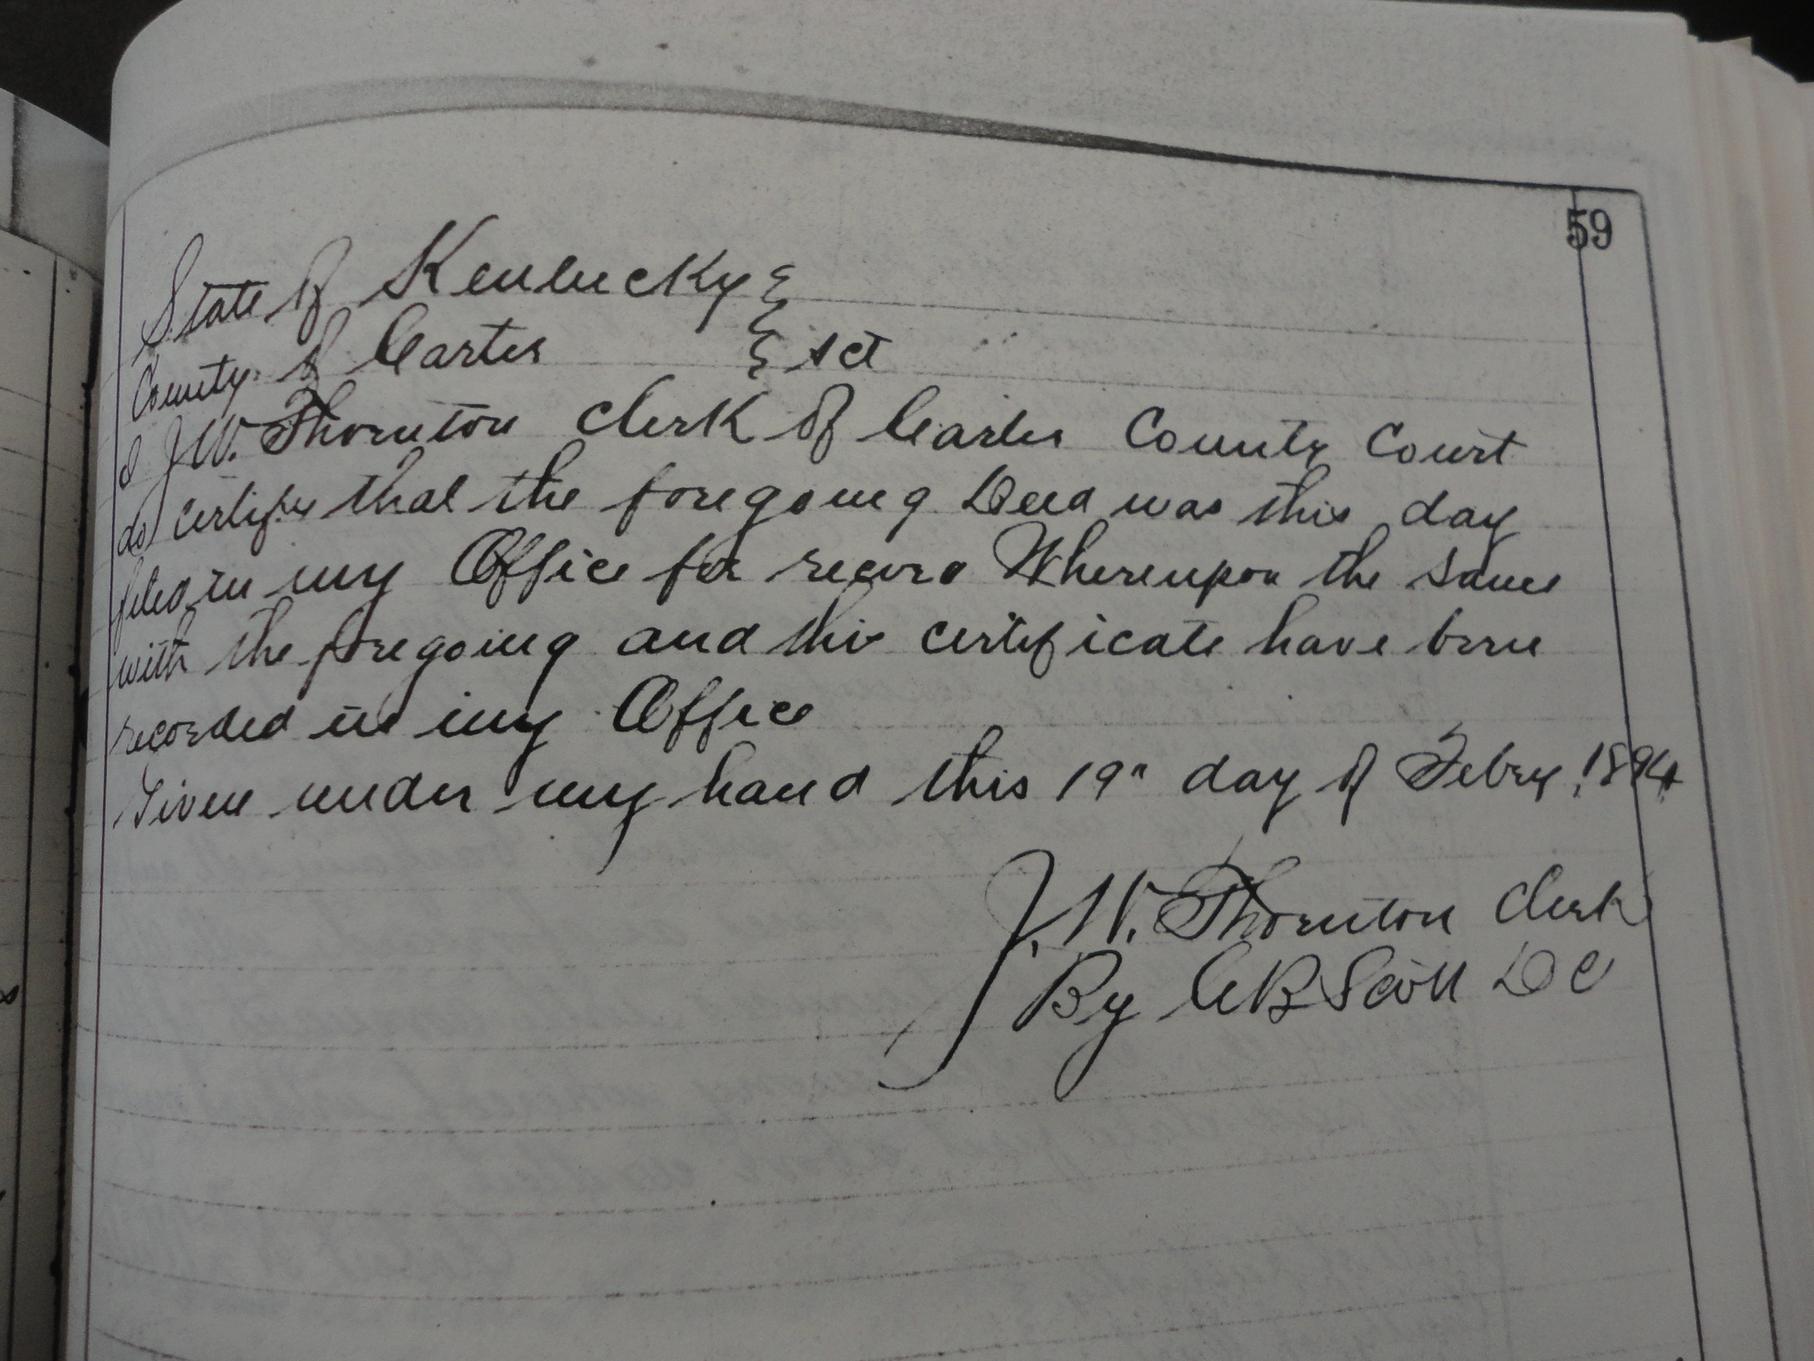 59
State of Kentucky
County of Carter } sct
I J.W. Thornton Clerk of Carter County Court
do certify that the foregoing Deed was this day
filed in my Office for record Whereupon the same
with the foregoing and this certificate have been
recorded in my Office
Given under my hand this 19" day of Febry, 1894
J.W. Thornton Clerk
By CB Scott DC